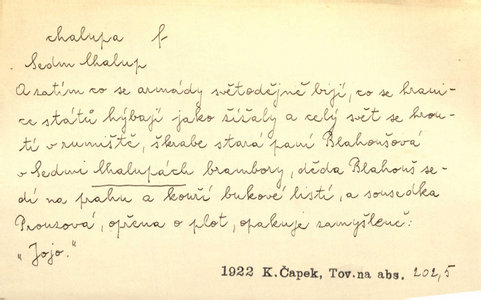 chalupa f
Sedm Chalup
A zatím co se armády světodějně bijí, co se hrani-
ce států hýbají jako šíšaly a celý svět se hrou-
tí v rumiště, škrabe stará paní Blahoušová
v Sedmi Chalupách brambory, děda Blahouš se-
dí na prahu a kouří bukové listí, a sousedka
Prouzová, opřena o plot, opakuje zamyšleně:
"Jojo."
1922 K. Čapek, Tov. na abs. 202,5